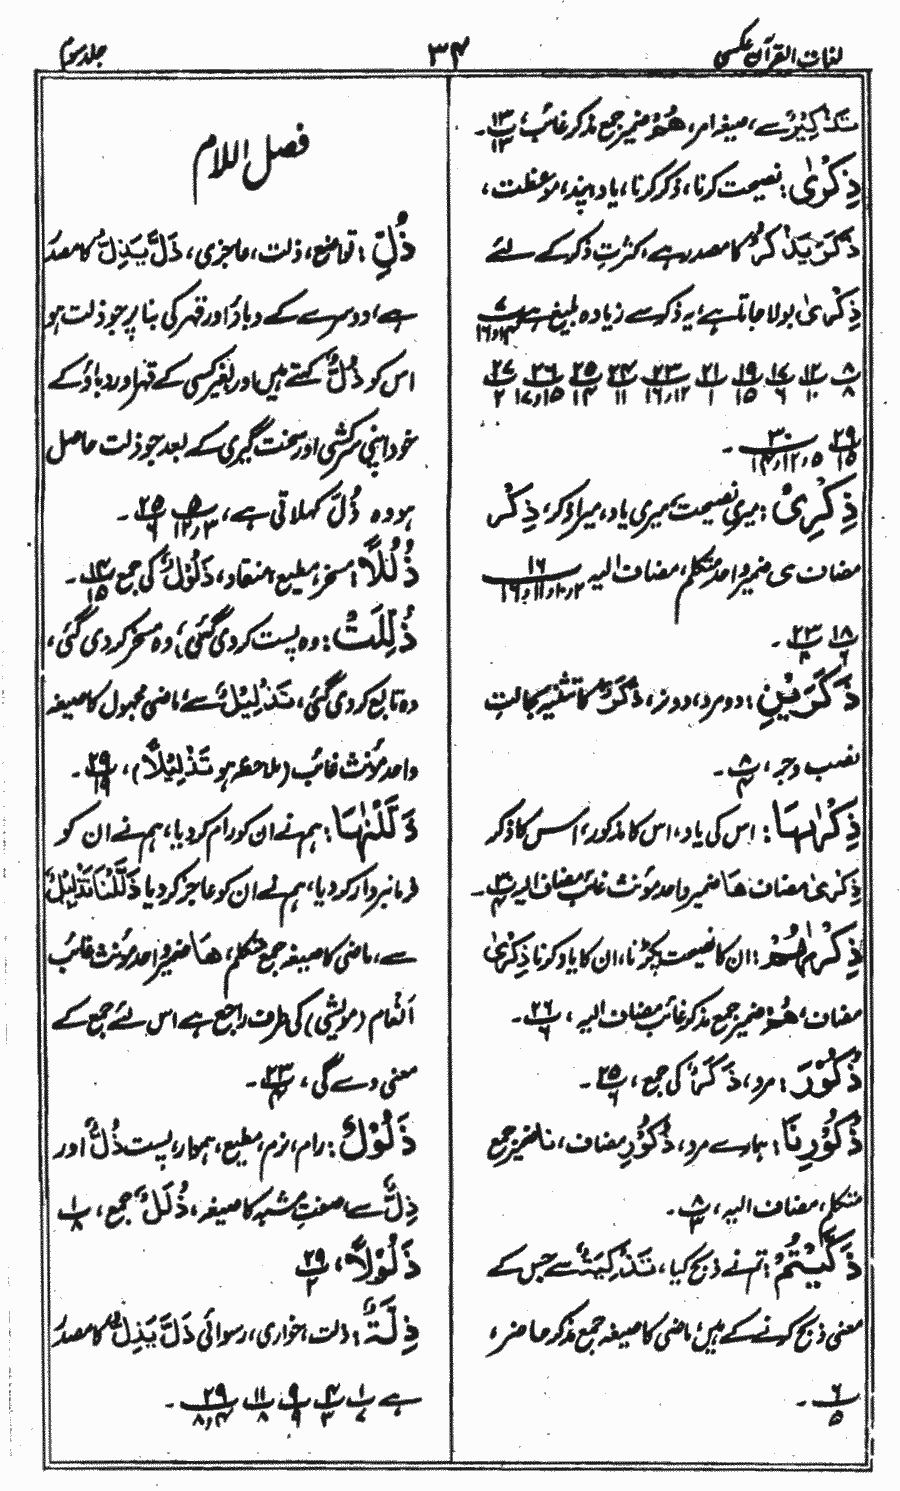 لغات القرآن عکسی
۳۴
جلد سوم
تَذْکِیْرٌ سے، صیغہ امر، هُمْ ضمیر جمع مذکر غائب، ۱۳/۱۳ ۔
ذِکْرٰی: نصیحت کرنا، ذکر کرنا، یاد، پند، موعظت،
ذَکَرَ یَذْکُرُ کا مصدر ہے، کثرتِ ذکر کے لئے
ذِکْرٰی بولا جاتا ہے، یہ ذکر سے زیادہ بلیغ ہے ۷/۱۴و۱۶
۸/۸ ۱۲/۱۰ ۱۷/۶ ۱۹/۱۵ ۲۱/۱ ۲۳/۱۲،۱۶ ۲۴/۱۱ ۲۵/۱۴ ۲۶/۱۵و۱۷ ۲۷/۲
۲۹/۱۵ ۳۰/۵،۱۲،۱۴ ۔
ذِکْرِیْ: میری نصیحت، میری یاد، میرا ذکر، ذِکْر
مضاف ی ضمیر واحد متکلم، مضاف الیہ ۱۶/۲،۱۰،۱۱و۱۶
۱۸/۶ ۲۳/۸ ۔
ذَکَرَیْنِ: دو مرد، دو نر، ذَکَرٌ کا تثنیہ بحالتِ
نصب و جر، ۸/۴ ۔
ذِکْرٰىهَا: اس کی یاد، اس کا مذکور، اس کا ذکر
ذِکْرٰی مضاف هَا ضمیر واحد مؤنث غائب مضاف الیہ ۳۰/۴ ۔
ذِکْرٰىهُمْ: ان کا نصیحت پکڑنا، ان کا یاد کرنا ذِکْرٰی
مضاف، هُمْ ضمیر جمع مذکر غائب مضاف الیہ، ۲۶/۶ ۔
ذُکُوْرَ: مرد، ذَکَرٌ کی جمع، ۲۵/۶ ۔
ذُکُوْرِنَا: ہمارے مرد، ذُکُوْرِ مضاف، نا ضمیر جمع
متکلم، مضاف الیہ، ۸/۳ ۔
ذَکَّیْتُمْ: تم نے ذبح کیا، تَذْکِیَةٌ سے جس کے
معنی ذبح کرنے کے ہیں، ماضی کا صیغہ جمع مذکر حاضر،
۶/۵ ۔
فصل اللام
ذُلِّ: تواضع، ذلت، عاجزی، ذَلَّ یَذِلُّ کا مصدر
ہے، دوسرے کے دباؤ اور قہر کی بنا پر جو ذلت ہو
اس کو ذُلٌّ کہتے ہیں، اور بغیر کسی کے قہر اور دباؤ کے
خود اپنی سرکشی اور سخت گیری کے بعد جو ذلت حاصل
ہو وہ ذُلٌّ کہلاتی ہے، ۵/۱۲،۳ ۲۵/۶ ۔
ذُلُلًا: مسخر، مطیع، منقاد، ذَلُوْلٌ کی جمع ۱۴/۱۵ ۔
ذُلِّلَتْ: وہ پست کردی گئی، وہ مسخر کردی گئی،
وہ تابع کردی گئی، تَذْلِیْلٌ سے، ماضی مجہول کا صیغہ
واحد مؤنث غائب (ملاحظہ ہو تَذْلِیْلًا)، ۲۹/۱۹ ۔
ذَلَّلْنٰهَا: ہم نے ان کو رام کردیا، ہم نے ان کو
فرمانبردار کردیا، ہم نے ان کو عاجز کردیا ذَلَّلْنَا تَذْلِیْلٌ
سے، ماضی کا صیغہ جمع متکلم، هَا ضمیر واحد مؤنث غائب
اَنْعَام (مویشی) کی طرف راجع ہے اس لئے جمع کے
معنی دے گی، ۲۳/۴ ۔
ذَلُوْلٌ: رام، نرم، مطیع، ہموار، پست ذُلٌّ اور
ذِلٌّ سے، صفتِ مشبہ کا صیغہ، ذُلُلٌ جمع، ۱/۸
ذَلُوْلًا، ۲۹/۲
ذِلَّةٌ: ذلت، خواری، رسوائی ذَلَّ یَذِلُّ کا مصدر
ہے ۱/۷ ۴/۳ ۹/۹ ۱۱/۸ ۲۹/۴،۸ ۔